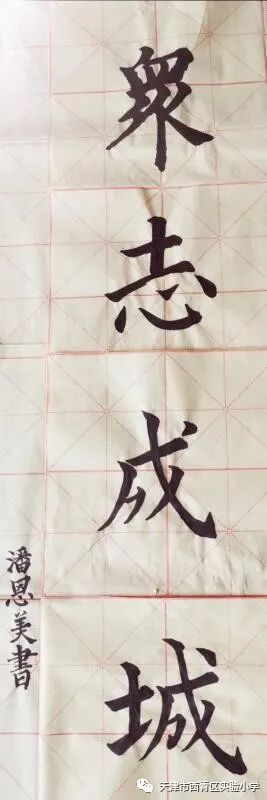 衆志成城
潘恩美書
天津市西青区实验小学